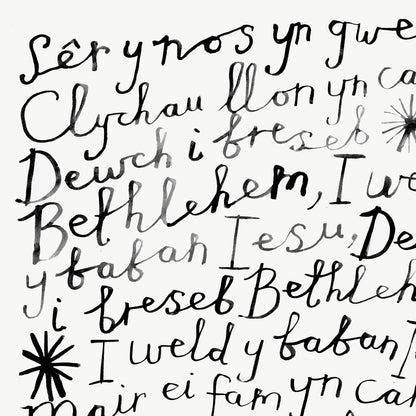 Sêr y nos yn gwe
Clychau llon yn ca
Dewch i breseb
Bethlehem, I we
y baban Iesu, De
i breseb Bethleh
I weld y baban I
Mair ei fam yn can